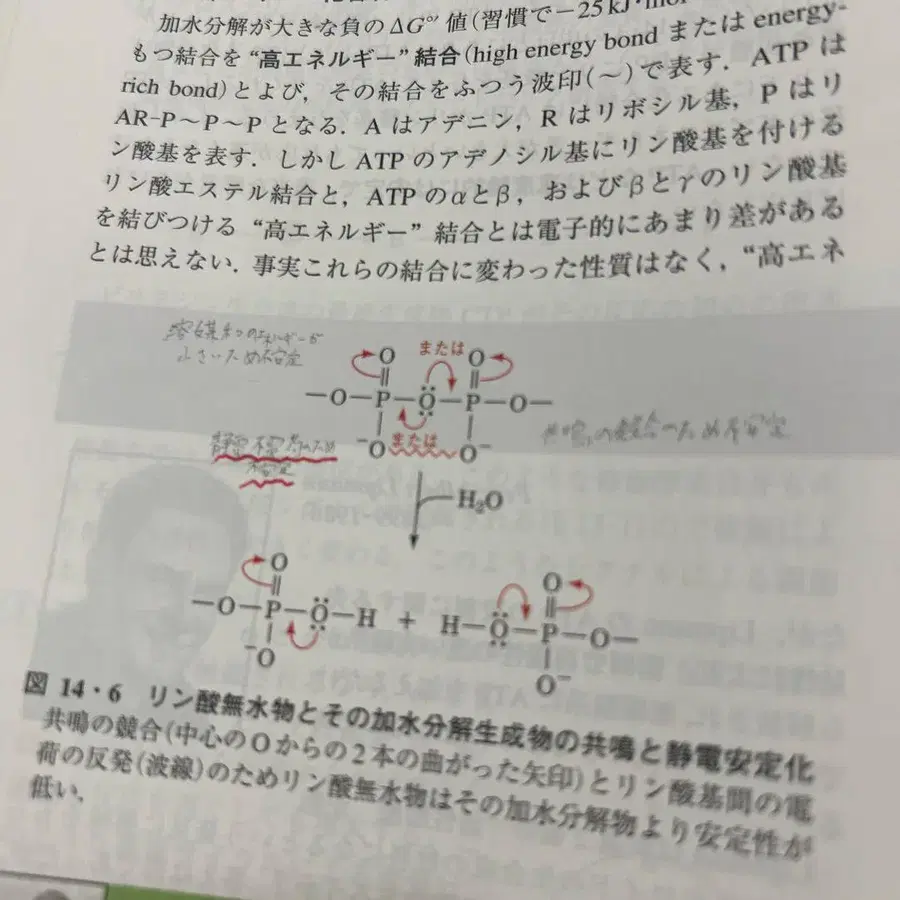 加水分解が大きな負のΔG°′値(習慣で−25 kJ·mol
もつ結合を“高エネルギー”結合(high energy bond または energy-
rich bond)とよび，その結合をふつう波印(〜)で表す．ATP は
AR-P〜P〜P となる．A はアデニン，R はリボシル基，P はリ
ン酸基を表す．しかし ATP のアデノシル基にリン酸基を付ける
リン酸エステル結合と，ATP のαとβ，およびβとγのリン酸基
を結びつける“高エネルギー”結合とは電子的にあまり差がある
とは思えない．事実これらの結合に変わった性質はなく，“高エネ
溶媒和のエネルギーが
小さいため不安定
O または O
−O−P−O−P−O−
⁻O または O⁻
共鳴の競合のため不安定
静電
不安定
H₂O
O O
−O−P−O−H + H−O−P−O−
⁻O O⁻
図 14・6 リン酸無水物とその加水分解生成物の共鳴と静電安定化
共鳴の競合(中心の O からの 2 本の曲がった矢印)とリン酸基間の電
荷の反発(波線)のためリン酸無水物はその加水分解物より安定性が
低い．